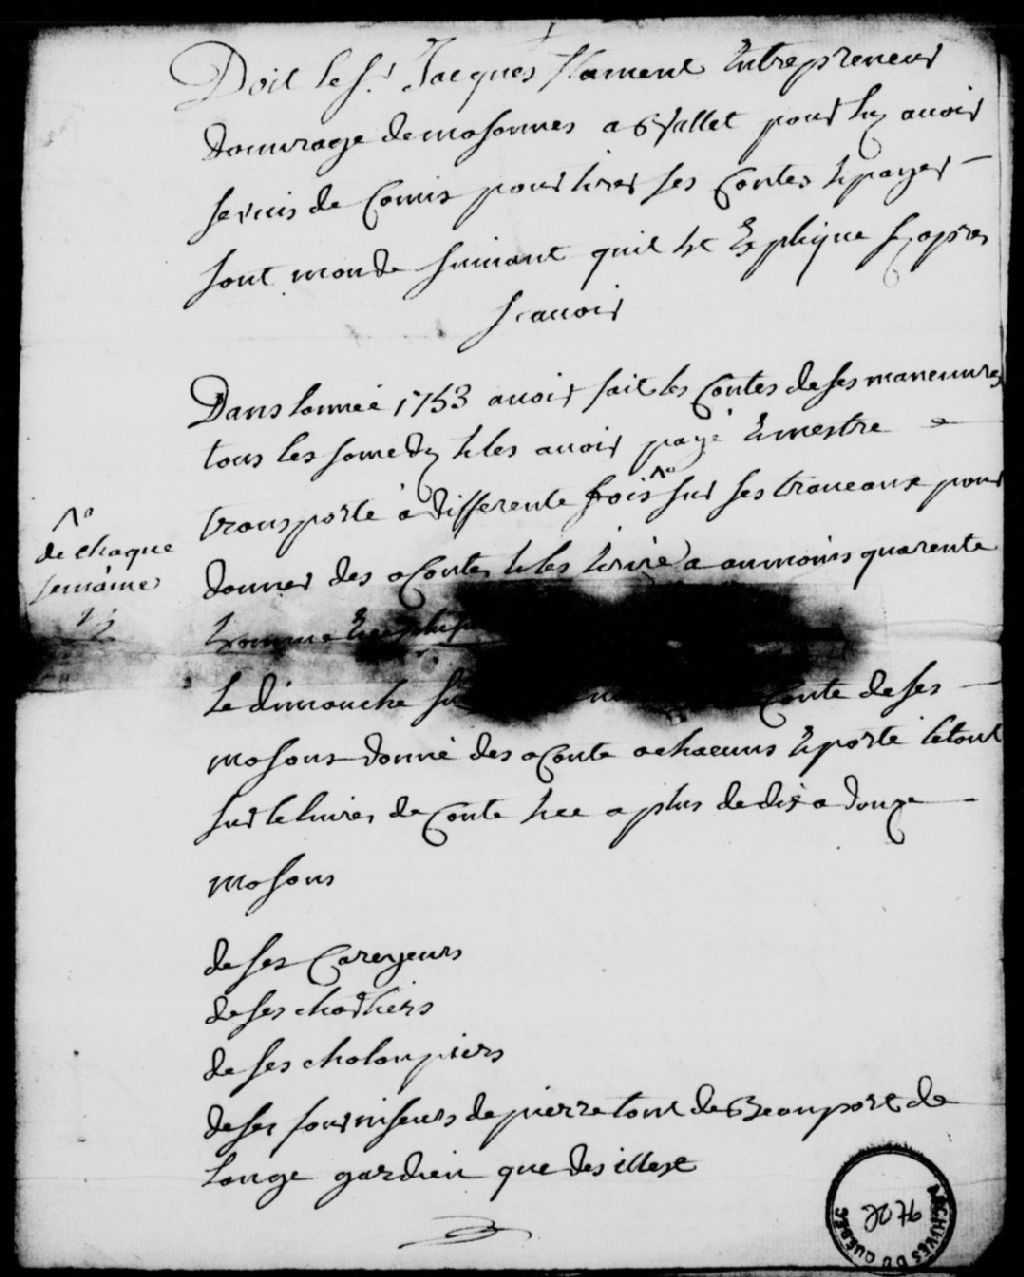 Doit le Sr. Jacques flament Entrepreneur
douvrage de masonnes a Sallet pour luy auoir
seruis de Comis pour tirer ses Contes Et payer
sont monde suiuant quil Et Explique sy apres
scauoir
Dans lannéé 1753 auoir fait les Contes de ses maneuures
tous les samedy Et les auoir payé Et mestre
transporté a differente fois ^a sur ses traueaux pour
^a
de chaque
semaine
donner des a Contes Et les Ecrire a aumoins quarente
homme
Le dimanche Conte de ses
masons donné des a Conte a chacuns Et porté le tout
sur le liures de Conte Et ce a plus de dix a douze
masons
de ses Careyeurs
de ses chartiers
de ses chaloupiers
de ses fourniseurs de pierre tant de Beauport de
Lange gardien que des illest
2076
ARCHIVES DU QUÉBEC